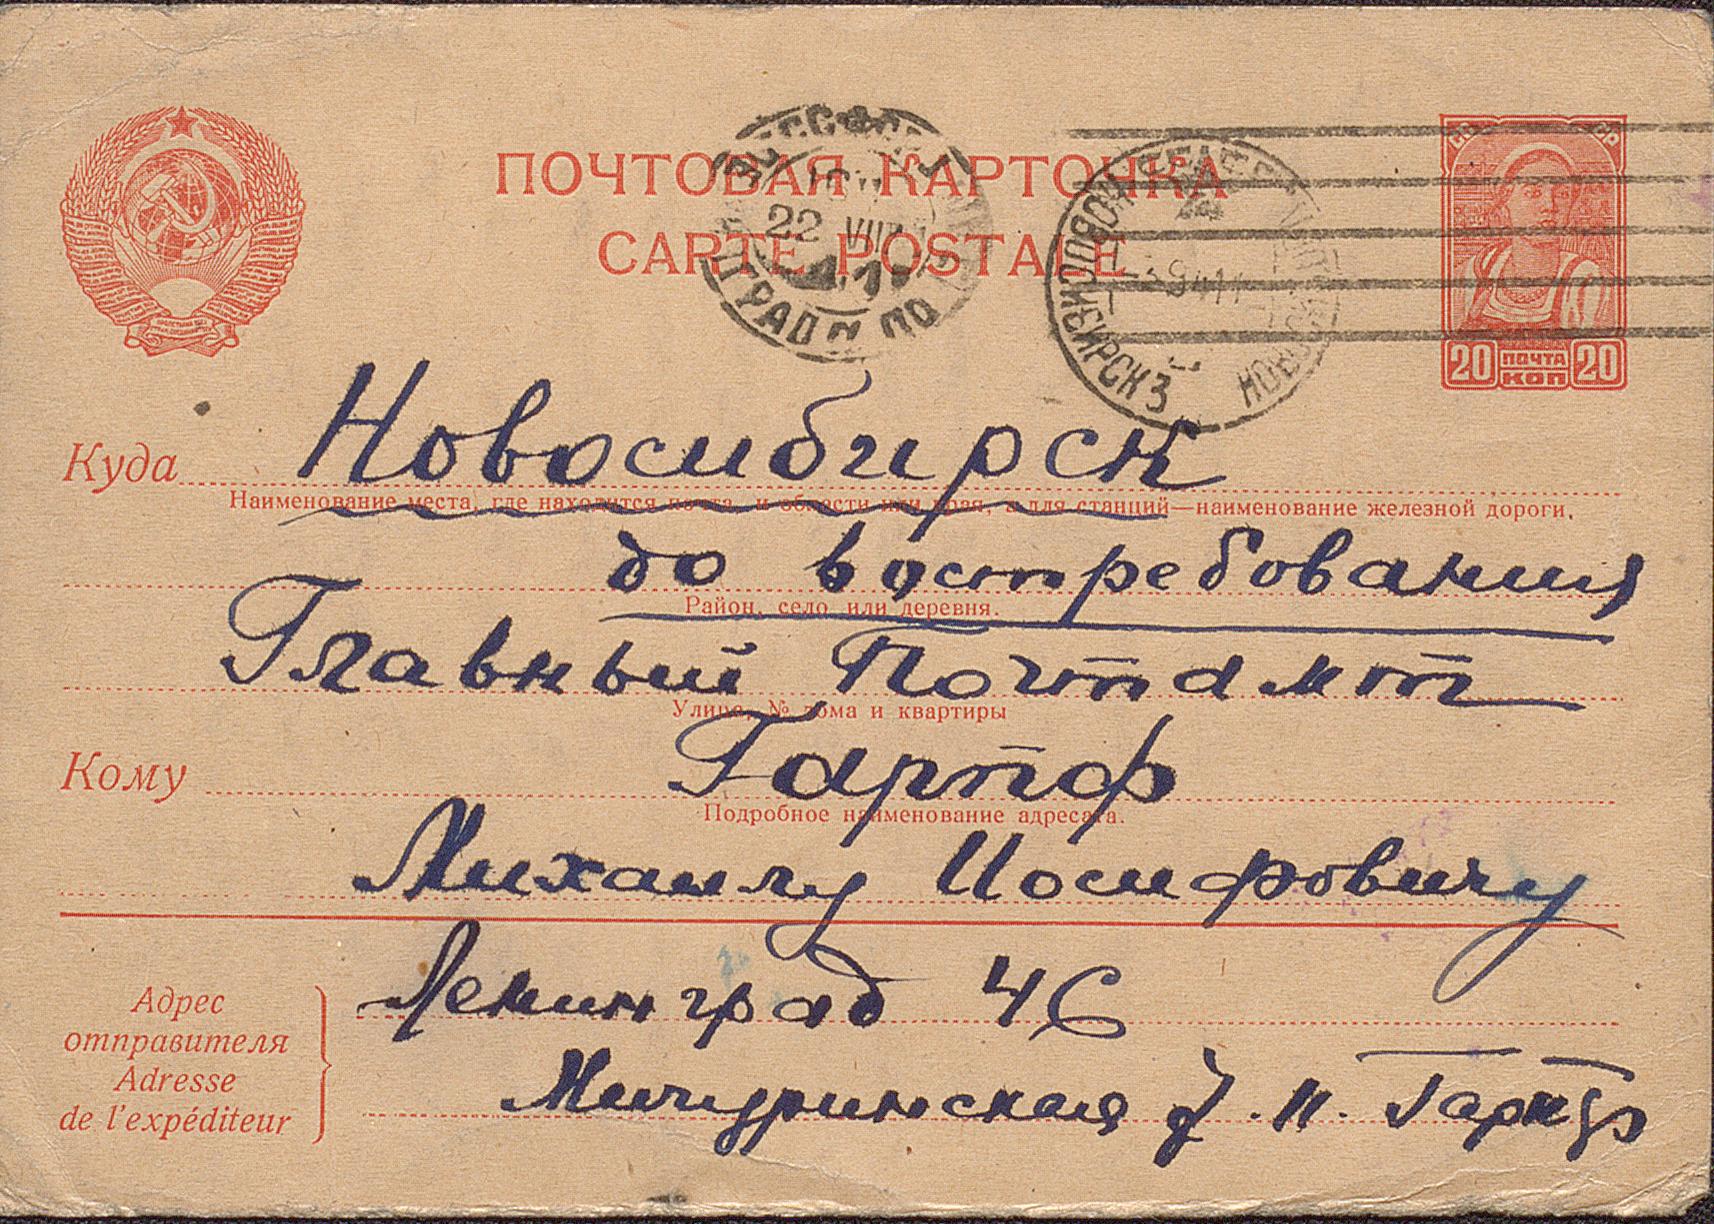 ПОЧТОВАЯ КАРТОЧКА
CARTE POSTALE
22 VIII
НОВОСИБИРСК 3
3 9 41
СС СР
20 ПОЧТА 20
КОП
Куда Новосибирск
Наименование места, где находится почта, и области или края, а для станций—наименование железной дороги.
до востребования
Район, село или деревня.
Главный Почтамт
Улица, № дома и квартиры
Кому Гартф
Подробное наименование адресата.
Михаилу Иосифовичу
Адрес
отправителя
Adresse
de l'expéditeur
Ленинград 46
Мичуринская И. Гартф